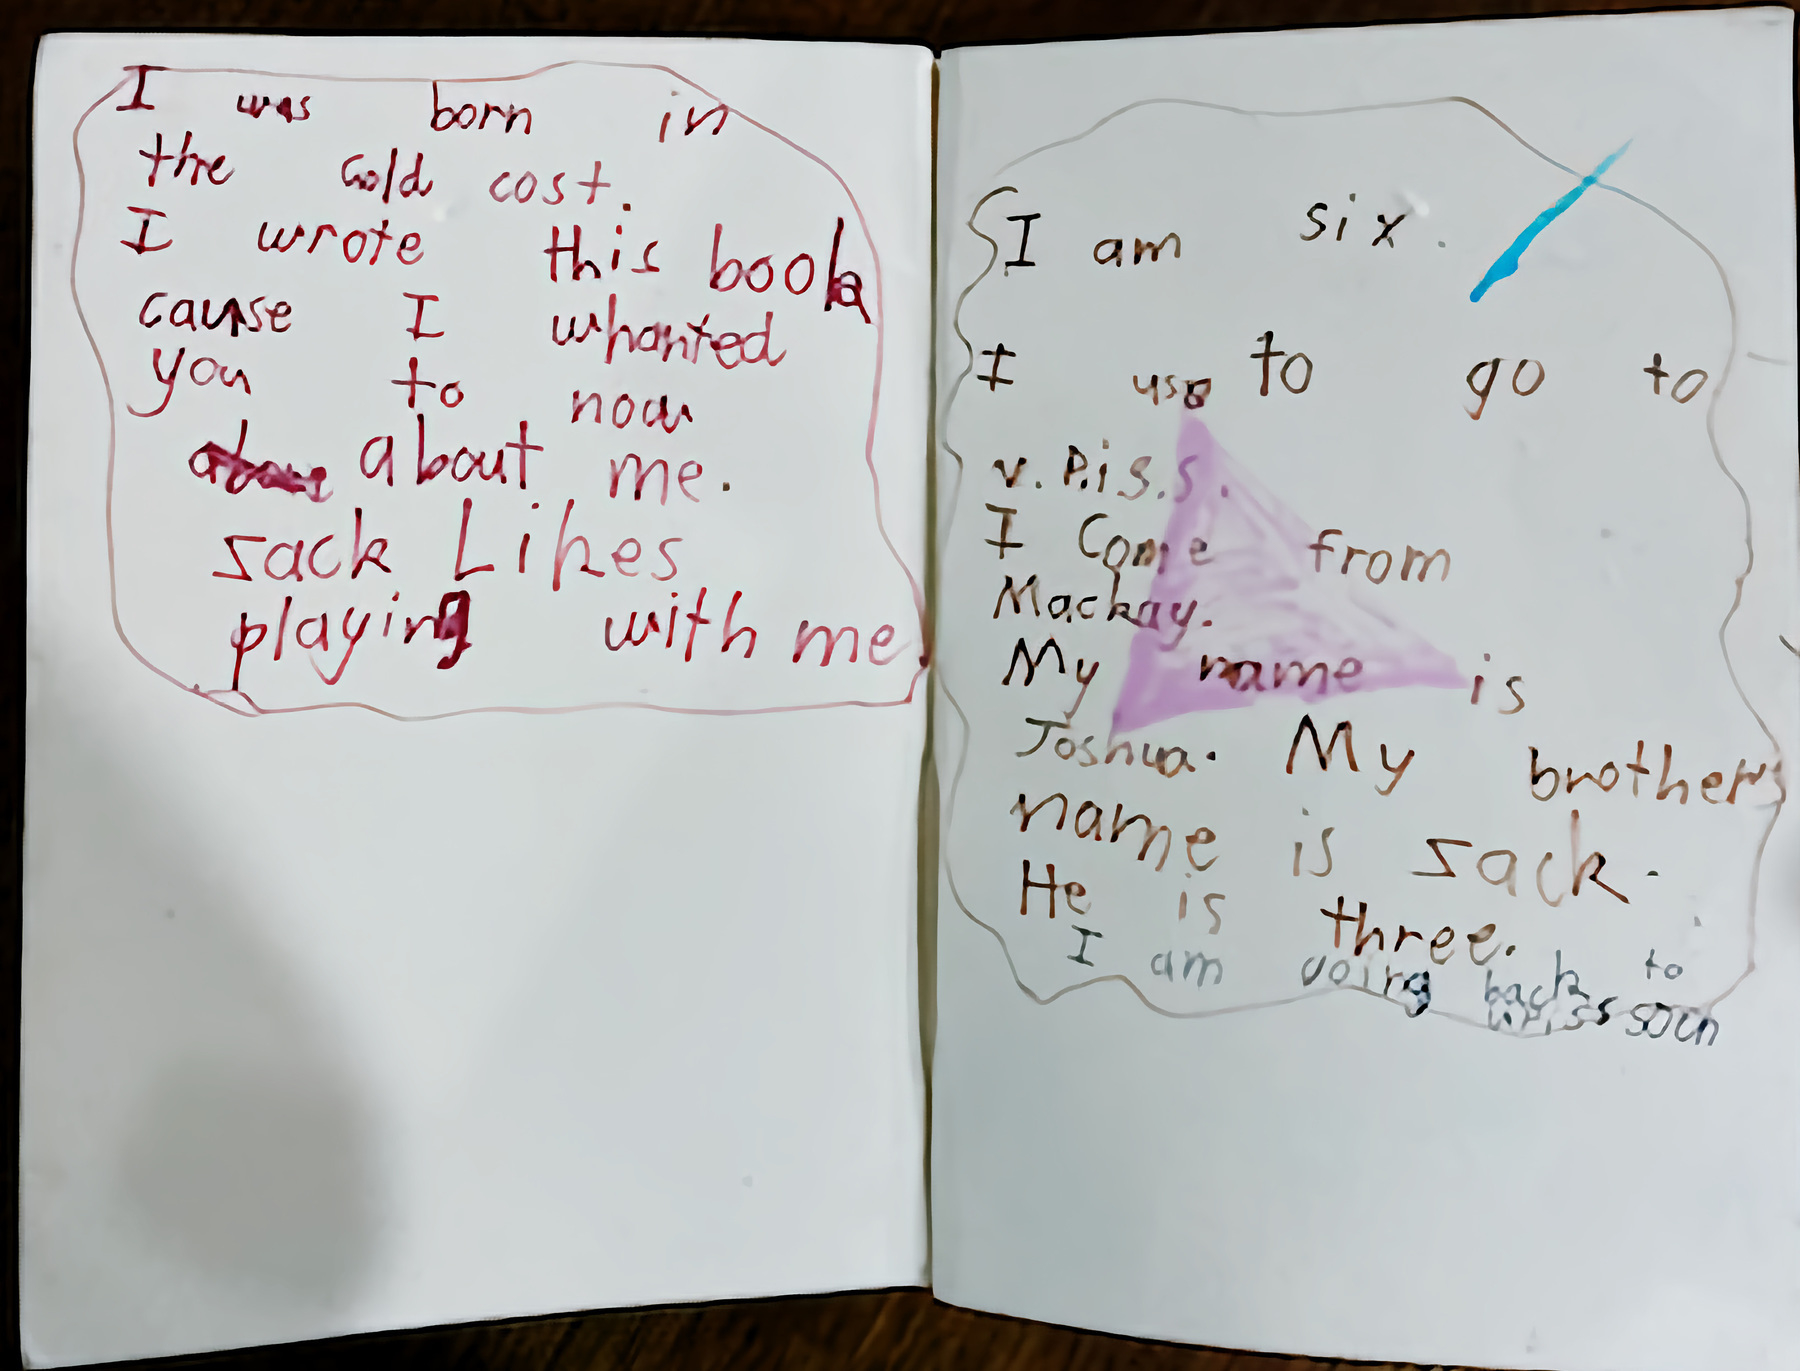 I was born in
the cold cost.
I wrote this book
cause I whanted
you to now
about me.
sack Likes
playing with me
I am six.
I use to go to
v.P.i.s.s.
I Come from
Mackay.
My name is
Joshua. My brothers
name is sack.
He is three.
I am going back to
soon